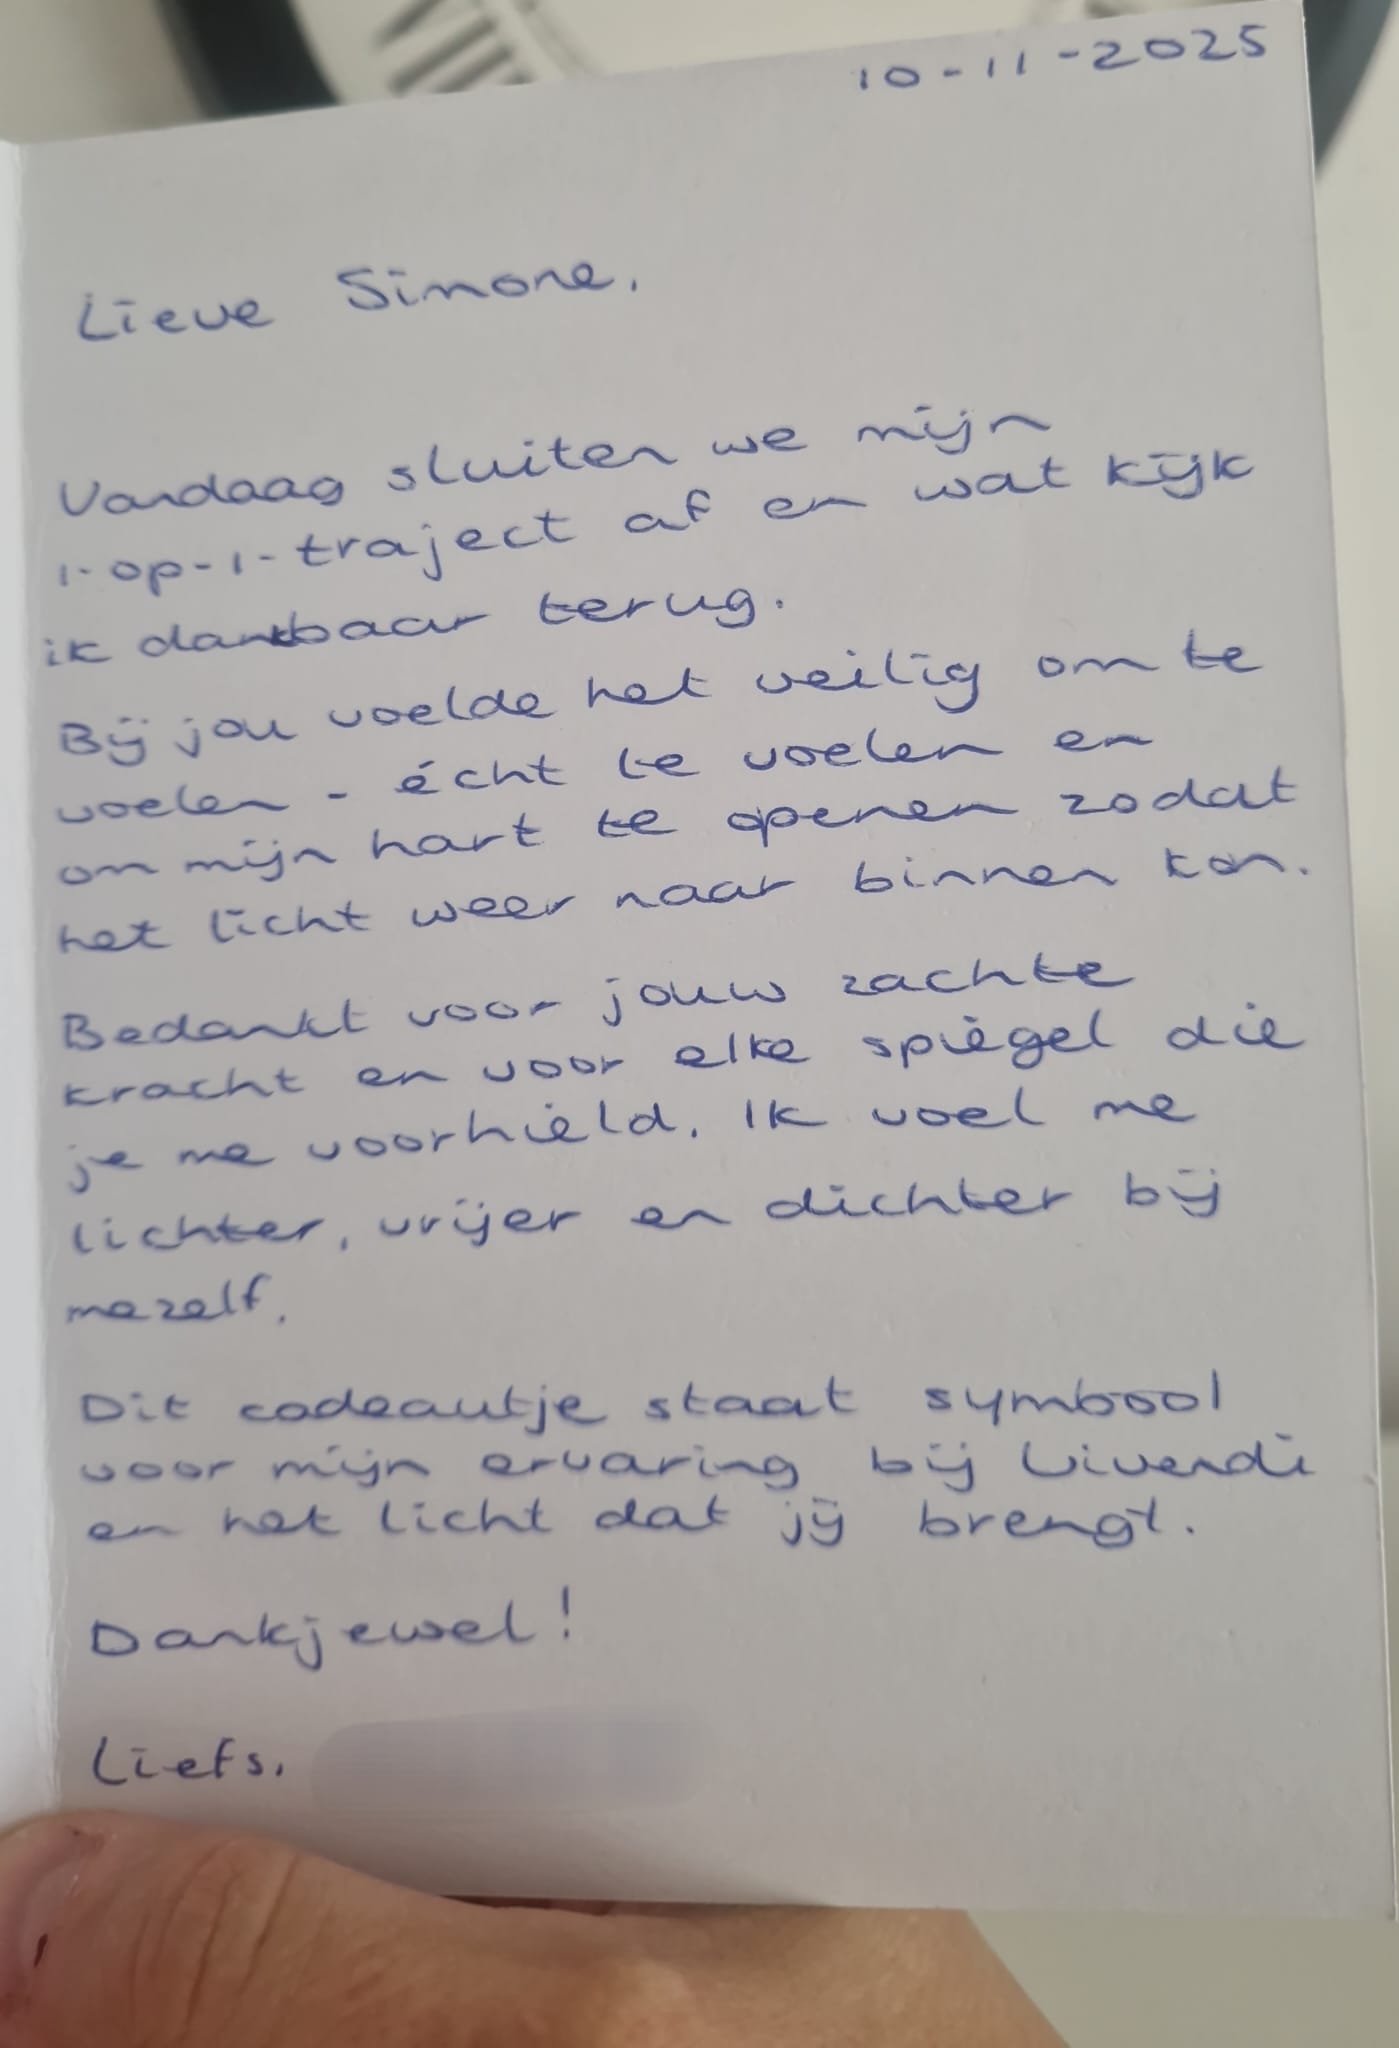 10-11-2025
Lieve Simone,
Vandaag sluiten we mijn
1-op-1-traject af en wat kijk
ik dankbaar terug.
Bij jou voelde het veilig om te
voelen - écht te voelen en
om mijn hart te openen zodat
het licht weer naar binnen kon.
Bedankt voor jouw zachte
kracht en voor elke spiegel die
je me voorhield. Ik voel me
lichter, vrijer en dichter bij
mezelf.
Dit cadeautje staat symbool
voor mijn ervaring bij Vivendi
en het licht dat jij brengt.
Dankjewel!
Liefs,